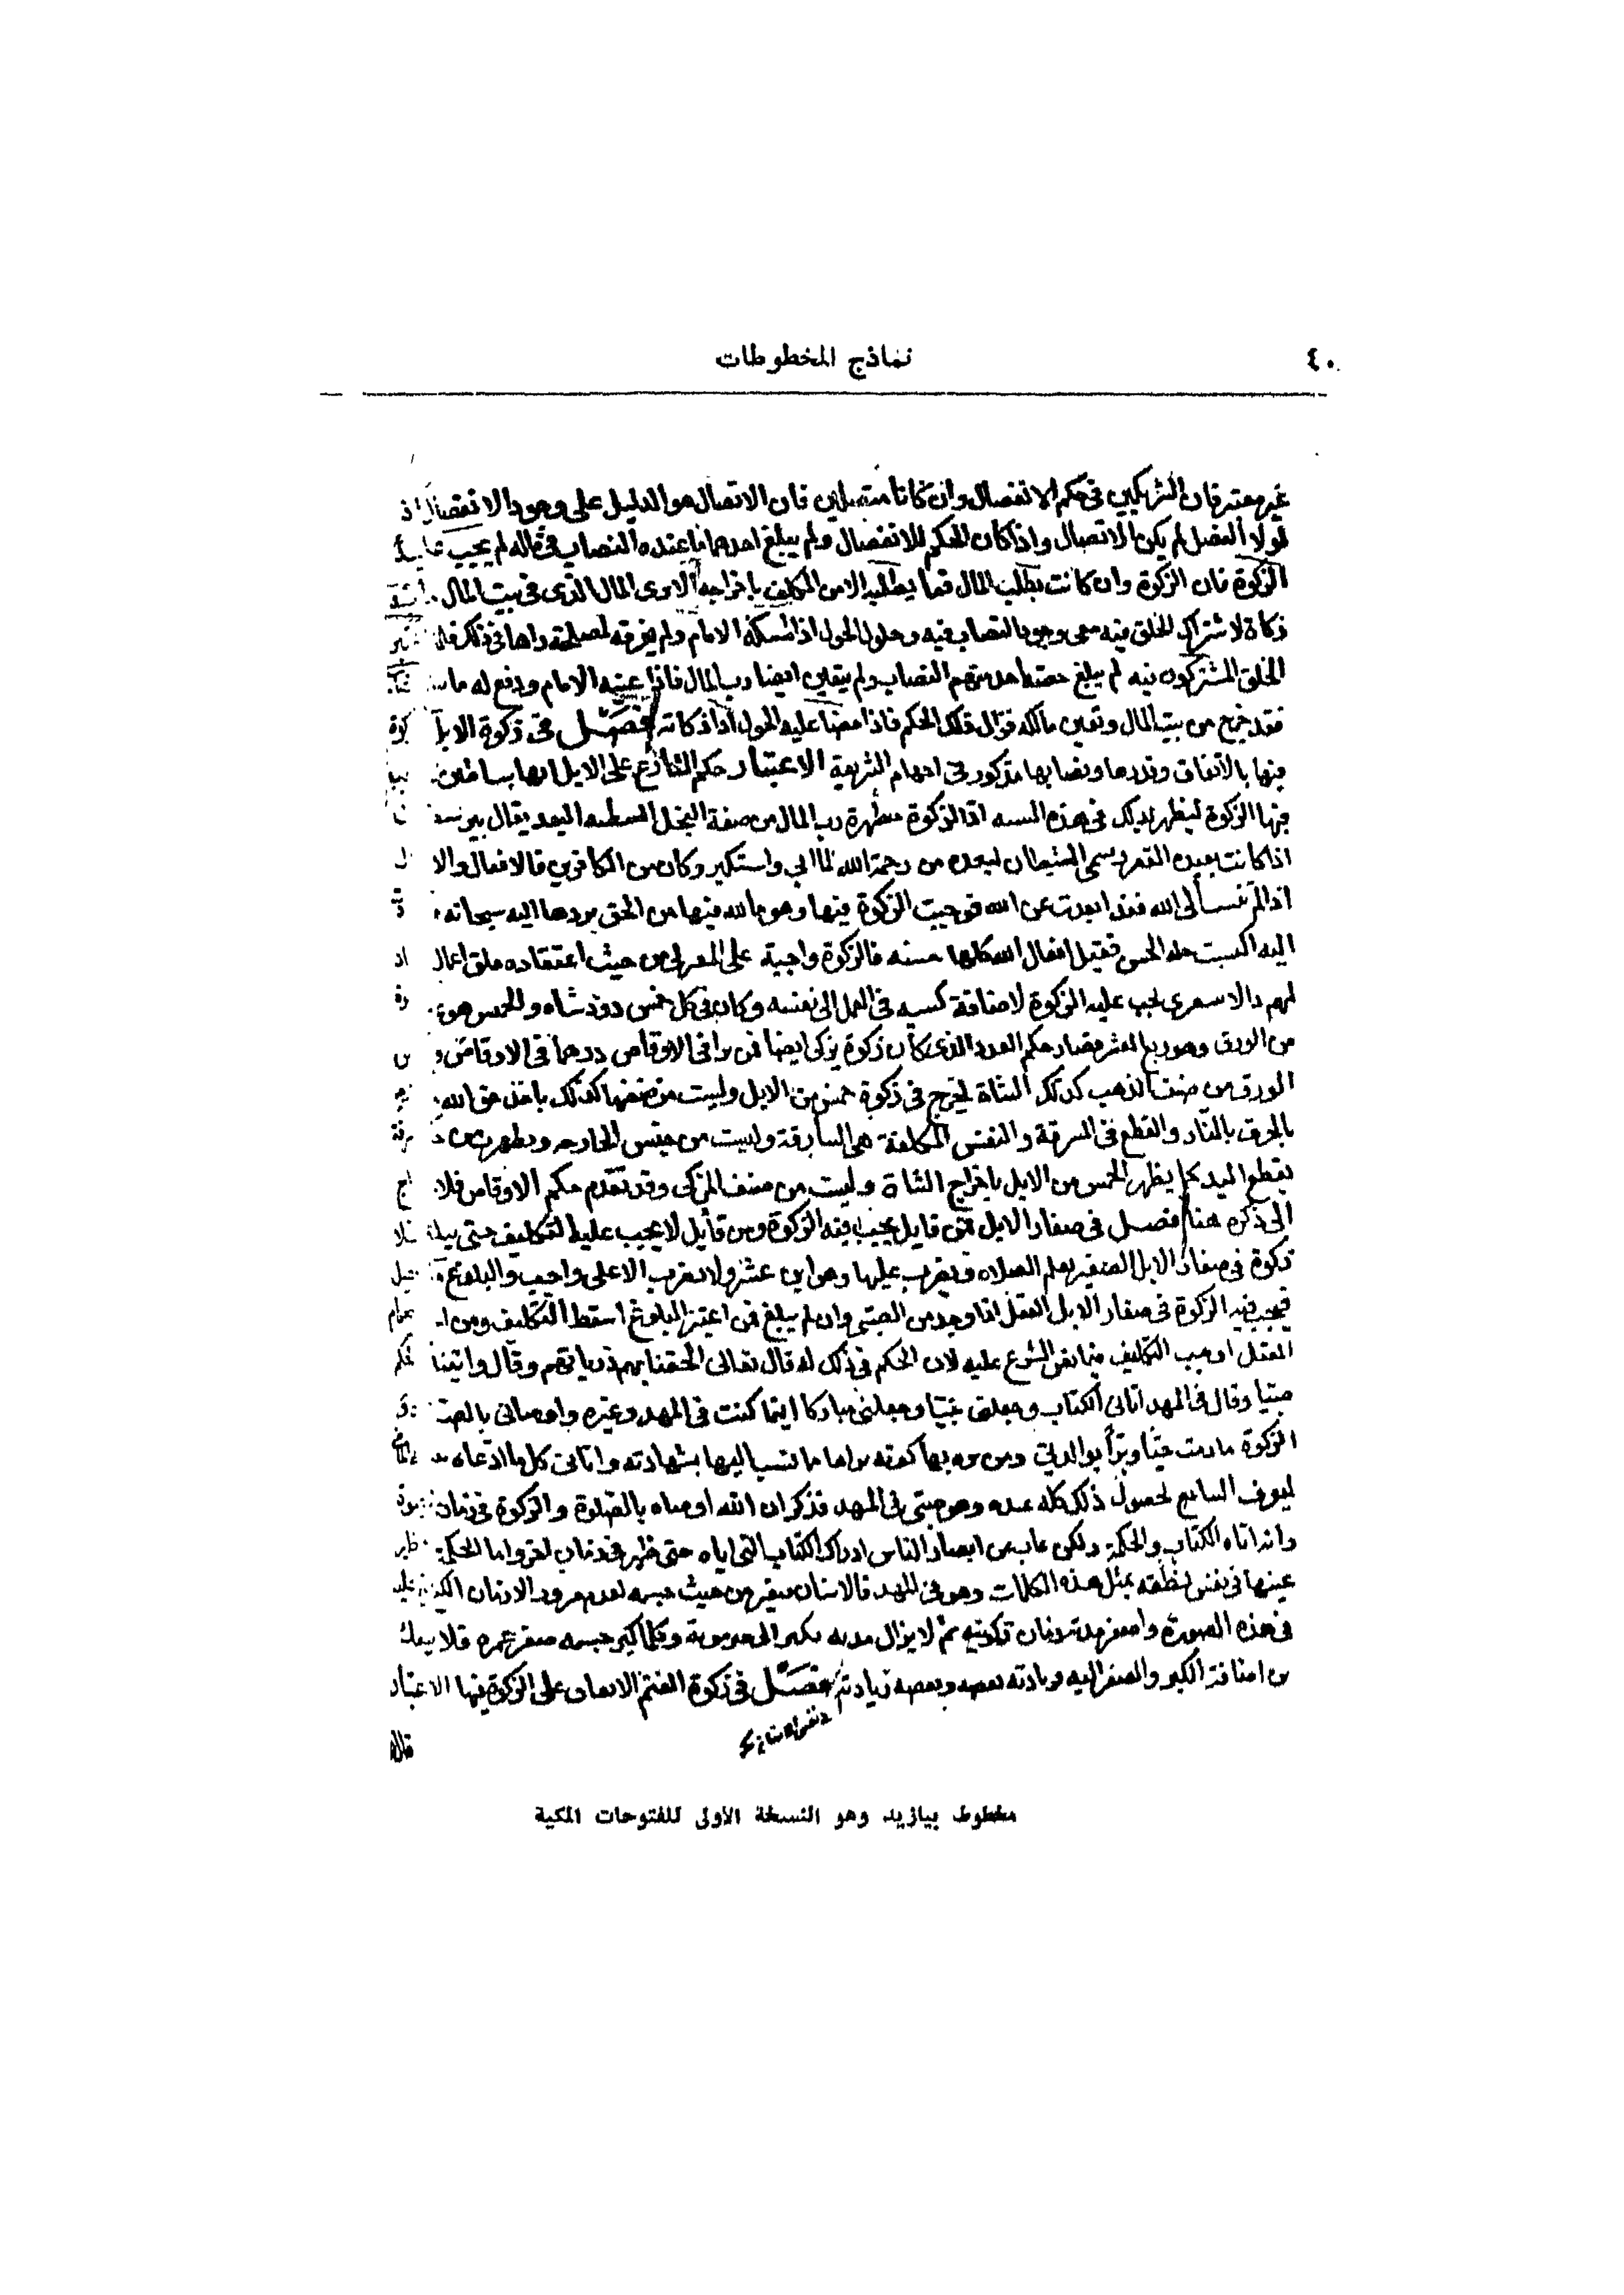 ٤٠
نماذج المخطوطات
غير معتبر فان الشريكين في حكم الانفصال وان كانا متصلين فان الاتصال هو الدليل على وجود الانفصال اذ
لولا الفصل لم يكن الاتصال واذا كان الحكم للانفصال ولم يبلغ احدهما ما عنده النصاب في ماله لم يجب عليه
الزكوة فان الزكوة وان كانت تطلب المال فما يطلبه الا من المكلف باخراجه الا ترى المال الذى في بيت المال
زكاة لاشتراك الخلق فيه مع وجود النصاب فيه وحلول الحول اذا امسكه الامام ولم يفرقه لمصلحة راها في ذلك فان
الخلق المشتركون فيه لم يبلغ حصة احد منهم النصاب ولم يتعين ايضا رب المال فاذا عينه الامام ودفع له ما
فقد خرج من بيت المال وتعين مالكه فزال ذلك الحكم فاذا مضا عليه الحول ادا زكاته فصل في زكوة الابل
فيها بالاتفاق وقدرها ونصابها مذكور في احكام الشريعة الاعتبار حكم الشارع على الابل انها شياطين
فيها الزكوة لتطهر بذلك في هذه النسبه اذ الزكوة مطهرة رب المال من صفة البخل الشيطنه البعد يقال بير
اذا كانت بعيدة القعر وسمى الشيطان لبعده من رحمة الله لما ابى واستكبر وكان من الكافرين فالافعال والا
اذا لم تنسب الى الله فقد ابعدت عن الله فوجبت الزكوة فيها وهو ما لله فيها من الحق بردها اليه سبحانه
اليه اكتسبت حلة الحسن فقيل افعال الله كلها حسنه فالزكوة واجبة على المعتزلي من حيث اعتقاده خلق اعمال
لهم والاشعرى تجب عليه الزكوة لاضافة كسبه في العمل الى نفسه وكان في كل خمس ذود شاه والخمس هو
من الورق وهو ربع العشر فصار حكم العدد الذى كان زكوة يزكى ايضا
الورق من صنف الذهب كذلك الشاة تخرج في زكوة خمس من الابل وليست من صنفها كذلك ياخذ حق الله
بالحرق بالنار والقطع في السرقة والنفس المكلفة هى السارقة وليست من جنس الجارحه وتطهرت من
بقطع اليد كما يطهر الخمس من الابل باخراج الشاة وليست من صنف المزكى وقد تقدم حكم الاوقاص فلا
الى ذكره هنا فصل في صغار الابل فمن قايل يجب فيه الزكوة ومن قايل لا يجب عليه التكليف حتى يبلغ فلا
زكوة في صغار الابل الصغير يعلم الصلاه ويضرب عليها وهو ابن عشر ولا يضرب الا على واجب والبلوغ
فيجب فيه الزكوة في صغار الابل العقل اذا وجد من الصبى وان لم يبلغ فمن اعتبر البلوغ اسقط التكليف ومن ا
العقل اوجب التكليف فيما نص الشرع عليه لان الحكم في ذلك له قال تعالى الحقنا بهم ذرياتهم وقال واتيناه الحكم
صبيا وقال في المهد اتانى الكتاب وجعلنى نبيا وجعلنى مباركا اينما كنت في المهد وغيره واوصانى بالصلوة
الزكوة ما دمت حيا وبرا بوالدتي ومن بره بها كونه براها مما نسب اليها بشهادته واتانى كل ما ادعاه
ليعرف السامع بحصول ذلك كله عنده وهو صبى في المهد فذكر ان الله اوصاه بالصلوة والزكوة في زمان نبوة
وانه اتاه الكتاب والحكمة ولكن غاب عن ابصار الناس ادراك الكتاب الذى اتاه حتى ظهر في زمان اخر واما الحكمة فظهر
عينها في نفس نطقه بمثل هذه الكلمات وهو في المهد فالانسان صغير من حيث جسمه لعدم مرور الازمان الكثيرة عليه
في هذه الصورة واصغر مدته زمان تكوينه ثم لا يزال مدته تكبر الى حين موته وكلما كبر جسمه صغر عمره فلا ينفك
من اضافة الكبر والصغر اليه فزيادته نقصه ونقصه زيادته فصل في زكوة الغنم الاتفاق على الزكوة فيها الاعتبار
قال الله
مخطوط بيازيد وهو النسخة الأولى للفتوحات المكية